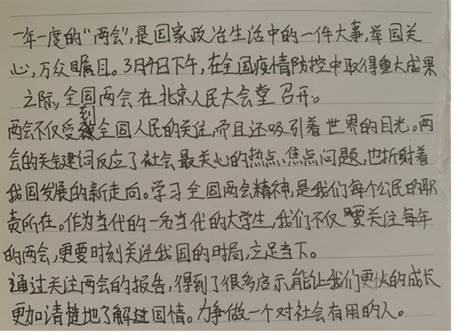 一年一度的“两会”,是国家政治生活中的一件大事,举国关
心,万众瞩目。3月4日下午,在全国疫情防控中取得重大成果
之际,全国两会在北京人民大会堂召开。
两会不仅受到全国人民的关注,而且还吸引着世界的目光。两
会的关键建议反应了社会最关心的热点、焦点问题,也折射着
我国发展的新走向。学习全国两会精神,是我们每个公民的职
责所在。作为当代的一名当代的大学生,我们不仅要关注每年
的两会,更要时刻关注我国的时局,立足当下。
通过关注两会的报告,得到了很多启示,能让我们更快的成长
更加清楚地了解国情。力争做一个对社会有用的人。